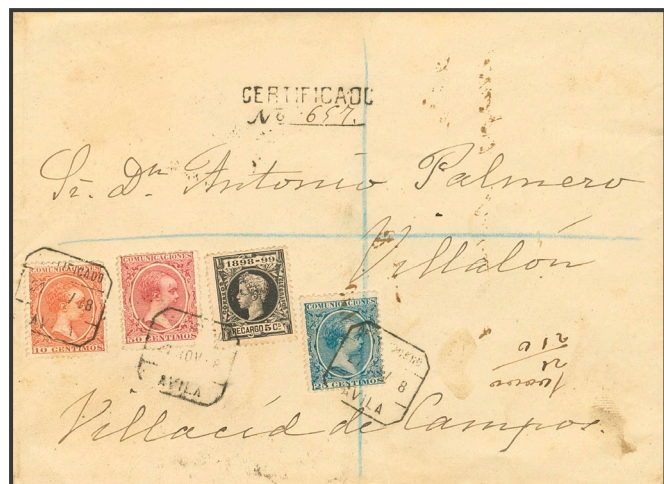 CERTIFICADO
Nº 657.
Sr. Dn Antonio Palmero
Villalón
COMUNICACIONES
10 CENTIMOS
COMUNICACIONES
50 CENTIMOS
1898-99
RECARGO 5 Cs
COMUNICACIONES
25 CENTIMOS
AVILA
AVILA
Villacid de Campos.